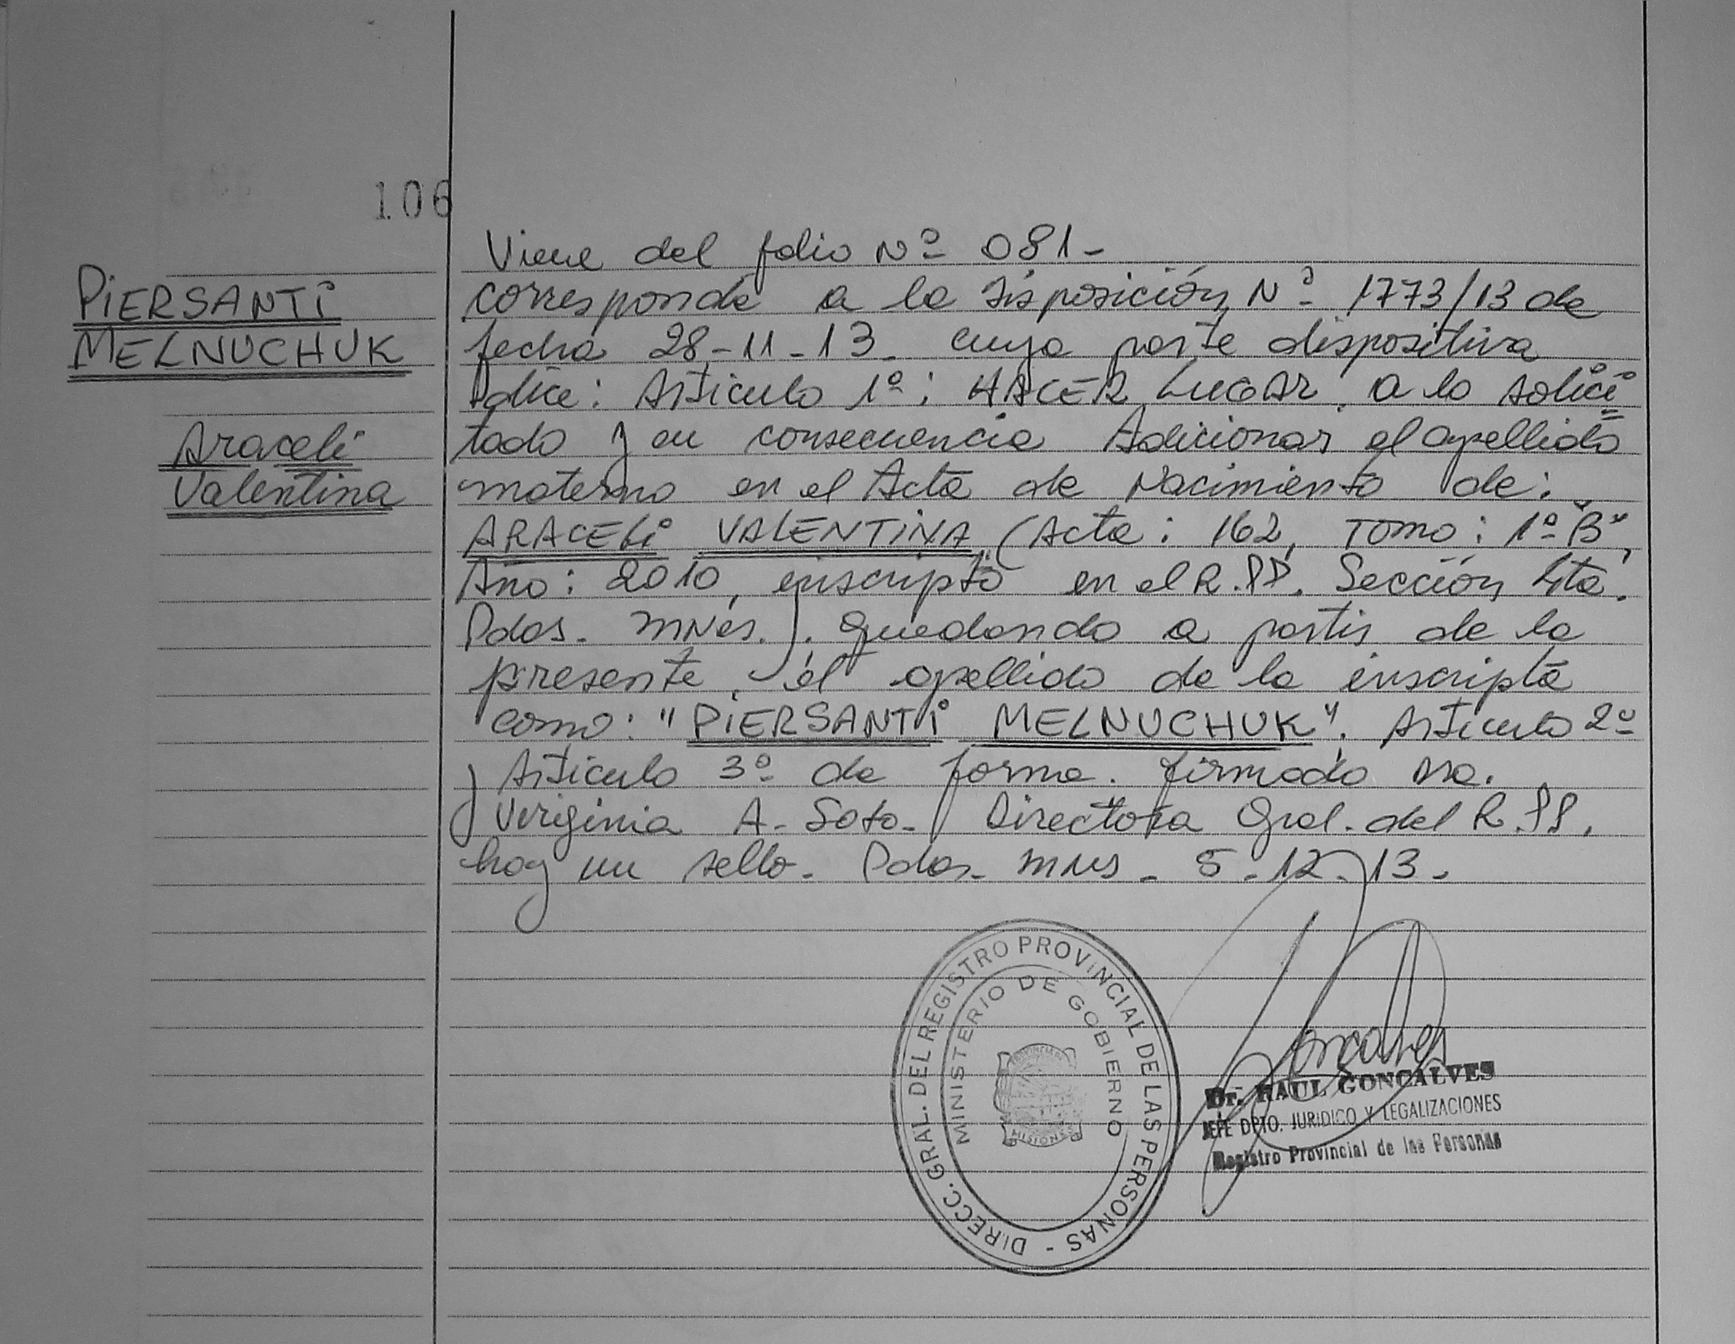 106
PIERSANTI
MELNUCHUK
Araceli
Valentina
Viene del folio Nº 081-
corresponde a la disposición Nº 1773/13 de
fecha 28-11-13- cuya parte dispositiva
dice: Articulo 1º: HACER LUGAR a lo solici
tado y en consecuencia Adicionar el apellido
materno en el Acta de Nacimiento de:
ARACELI VALENTINA (Acta: 162, Tomo: 1º "B",
Año: 2010, inscripto en el R.PP. Sección 4ta.
Pdas. Mnes.). quedando a partir de la
presente, el apellido de la inscripta
como: "PIERSANTI MELNUCHUK". Articulo 2º
y Articulo 3º de forma. firmado Dra.
Virginia A. Soto- Directora Gral. del R.PP.
hay un sello. Pdas. Mnes - 5-12-13.
DIRECC. GRAL. DEL REGISTRO PROVINCIAL DE LAS PERSONAS -
MINISTERIO DE GOBIERNO
PROVINCIA DE
MISIONES
Dr. RAUL GONCALVES
JEFE DPTO. JURIDICO Y LEGALIZACIONES
Registro Provincial de las Personas